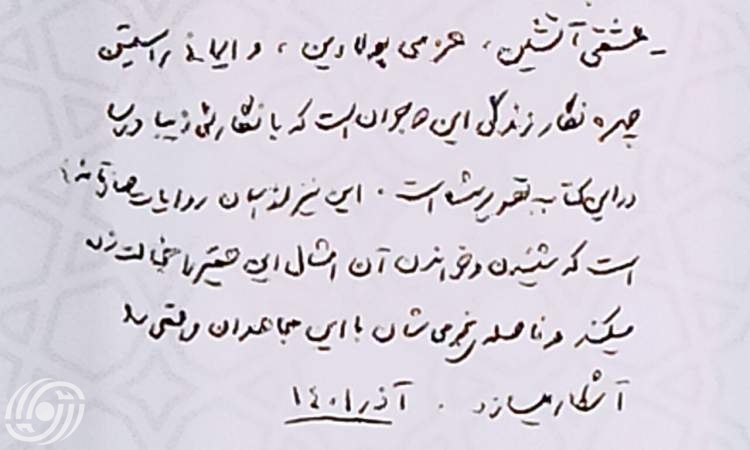 ـ عشقی آتشین، عزمی پولادین، و ایمانی راستین
چهره نگار زندگی این جوان است که با نگارشی زیبا و رسا
در این کتاب به تصویر کشیده شده است. این نیز از آن روایات صادقانه‌ئی
است که شنیدن و خواندن آن امثال این حقیر را خجالت زده
میکند و فاصله‌ی نجومی‌شان با این مجاهدان واقعی را
آشکار میسازد. آذر ۱۴۰۱